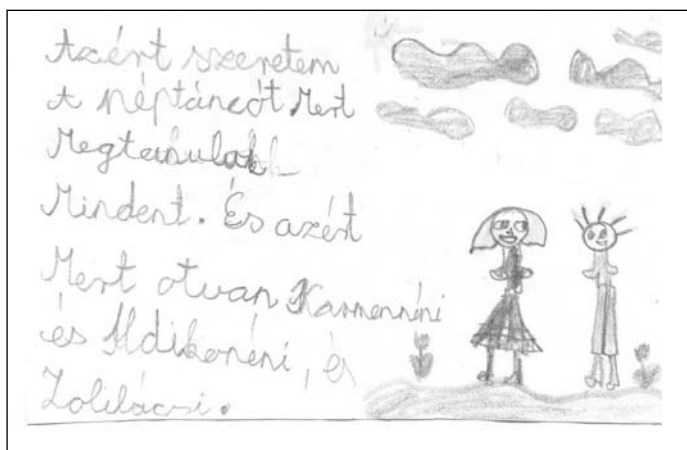 Azért szeretem
A néptáncót Mert
Megtanulok
Mindent. És azért
Mert otvan Karmennéni
és Ildikonéni, és
Zolibácsi.